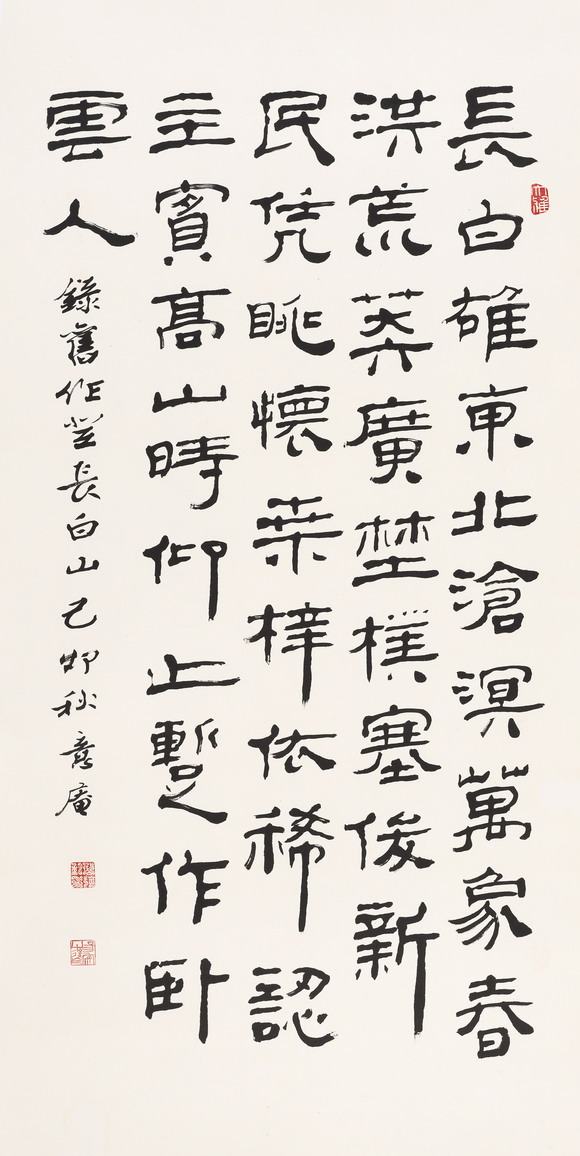 長白雄東北滄溟萬象春
洪荒莽廣埜樸塞俊新
民凭眺懷桑梓依稀認
主賓高山時仰止暫作臥
雲人
錄舊作登長白山己卯秋意庵